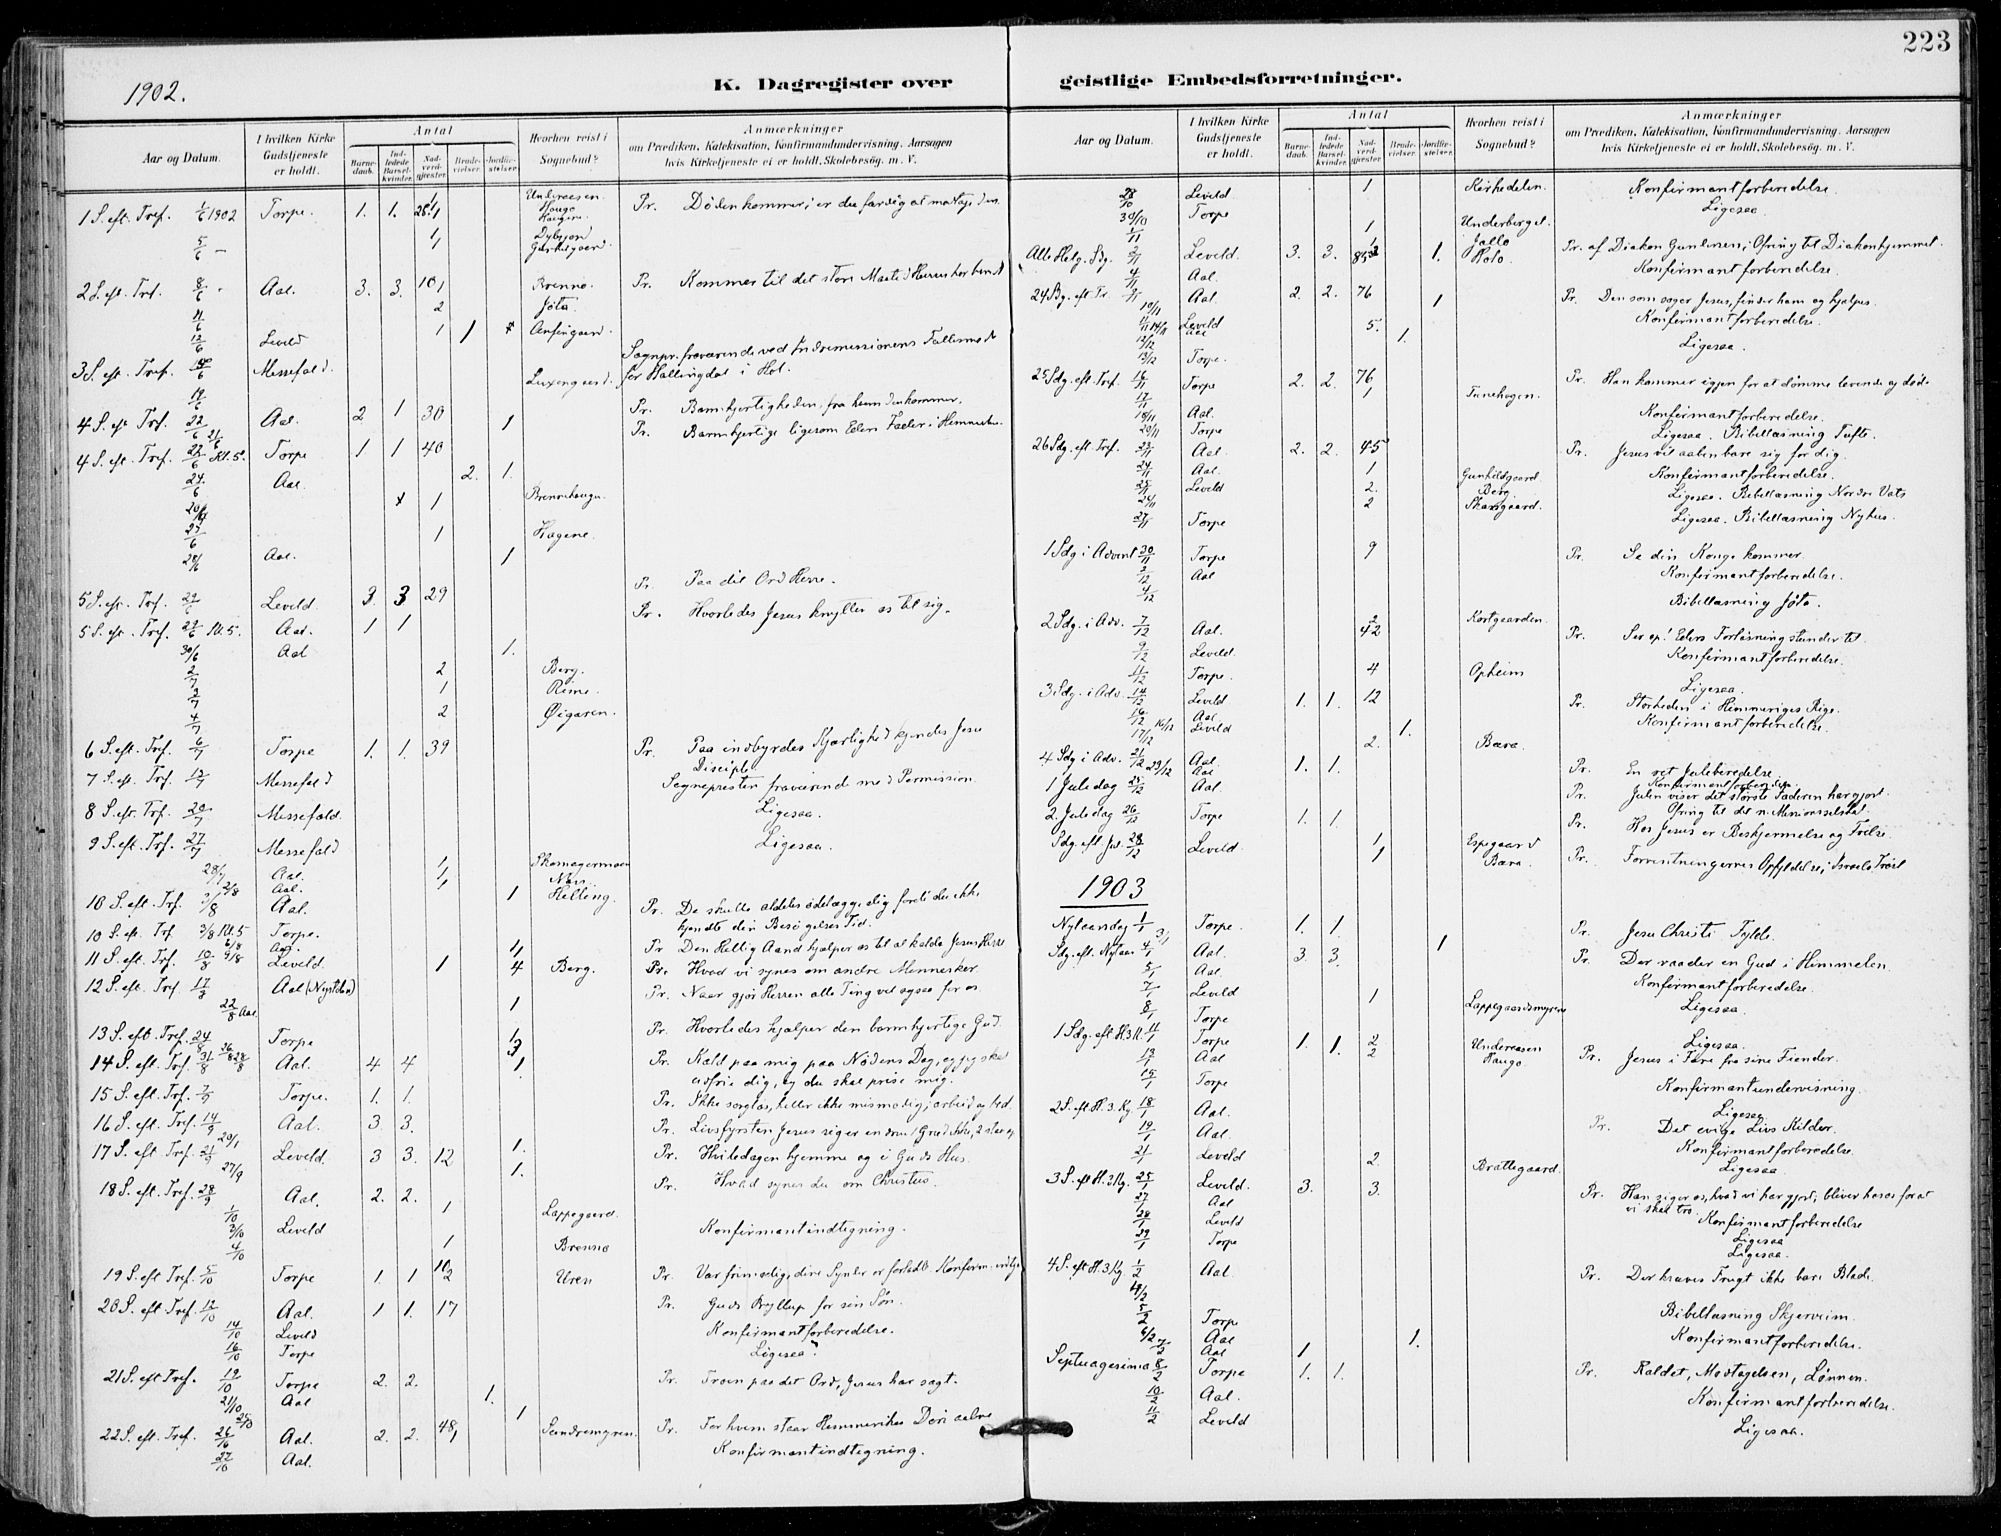 223
1902.
K. Dagregister over geistlige Embedsforretninger.
Aar og Datum.
I hvilken Kirke Gudstjeneste er holdt.
Antal
Barnedaab.
Indledede Barselkvinder.
Nadverdgjester.
Brudevielser.
Jordfæstelser.
Hvorhen reist i Sognebud?
Anmærkninger
om Prædiken, Katekisation, Konfirmandundervisning. Aarsagen hvis Kirketjeneste ei er holdt. Skolebesøg. m. V.
1 S. eft. Tref. 1/6 1902 Torpe. 1. 1. Pr. Døden kommer; er du færdig at
5/6 -
2 S. eft. Tref. 8/6 Aal. 3. 3. 10 Brenno Pr. Kommer til det store
11/6 2 Jøta.
12/6 Leveld 1 1
3 S. eft. Tref. 15/6 Messefald. Sognepr. fraværende ved Indremissionens
for Hallingdal i Hol.
19/6
4 S. eft Tref. 22/6 Aal. 2 1 30 1 Pr. Barmhjertigheden, fra hvem den kommer.
4 S. eft. Tref. 22/6 Kl. 5. Torpe 1 1 40 Pr. Barmhjertige ligesom Eders Fader i Himmelen.
24/6 Aal. 2. 1.
1 Brennehaugn
27/6 1 Hagene.
28/6 Aal. 1
5 S. eft. Tref. 29/6 Leveld. 3 3 29 Pr. Paa dit Ord Herre.
5 S. eft. Tref. 29/6 Kl. 5. Aal. 1 1 Pr. Hvorledes Jesus knytter os til sig.
30/6 Aal 1.
2/7 2 Berg.
1 Rime.
4/7 2 Øigaren.
6 S. eft. Tref. 6/7 Torpe 1. 1. 39 Pr. Paa indbyrdes Kjærlighed kjendes Jesu Disciple
7 S. eft. Tref. 13/7 Messefald Sognepresten fraværende med Permission.
8 S. eft. Tref. 20/7 Messefald. Ligesaa.
9 S. eft. Tref. 27/7 Messefald Ligesaa.
28/7 Aal. 1
2/8 Aal. 1
10 S. eft. Trf. 3/8 Aal. 1 Helling. Pr. De skulle aldeles ødelægge dig fordi du ikke
kjendte din Besøgelses Tid.
10 S. eft. Trf 3/8 Kl. 5 Torpe. Pr Den Hellig Aand hjælper os til at kalde Jesus Herre
11 S. eft. Tref. 10/8 Leveld. 1 4 Berg. Pr. Hvad vi synes om andre Mennesker
12 S. eft. Tref 17/8 Aal (Nystølen) Pr. Naar gjør Herren alle Ting vel ogsaa for os
22/8 Aal. 1
13 S. eft. Tref. 24/8 Torpe Pr. Hvorledes hjælper den barmhjertige Gud.
14 S. eft. Tref. 31/8 Aal. 4 4 1 Pr. Kald paa mig paa Nødens Dag, og jeg skal
udfrie dig, og du skal prise mig.
15 S. eft. Tref. 7/9 Torpe. 1. 1. Pr. Ikke sorgløs, heller ikke mismodig; arbeid og bed.
16 S. eft. Tref. 14/9 Aal. 3. 3. Pr. Livsfyrsten Jesus siger
17 S. eft Tref. 21/9 Leveld. 3 3. 12 1. Pr. Hviledagen hjemme og i Guds Hus.
27/9 1.
18 S. eft. Tref. 28/9 Aal. 2. 2. Pr. Hvad synes du om Christus.
1/10 1 Lappegaard.
3/10 Leveld Konfirmantindtegning.
4/10 1 Brenno
19 S. eft Tref. 5/10 Torpe 1. 1 Uren Pr. Vær frimodig, dine Synder er forladte.
20 S. eft Tref. 12/10 Aal. 1 1. 17 Pr. Guds Bryllup for sin Søn.
14/10 Leveld Konfirmantforberedelse.
16/10 Torpe Ligesaa.
21 S. eft Tref. 19/10 Torpe 2. 2. Pr. Troen paa det Ord, Jesus har sagt.
21/10 Aal 1.
25/10 1
22 S. eft. Tref. 26/10 Aal. 2. 2. 48 Sundremgren. Pr. For hvem staar Himmerikes Dør aaben
27/10 Aal. Konfirmantindtegning.
Aar og Datum.
I hvilken Kirke Gudstjeneste er holdt.
Antal
Barnedaab.
Indledede Barselkvinder.
Nadverdgjester.
Brudevielser.
Jordfæstelser.
Hvorhen reist i Sognebud?
Anmærkninger
om Prædiken, Katekisation, Konfirmandundervisning. Aarsagen hvis Kirketjeneste ei er holdt. Skolebesøg. m. V.
28/10 Leveld. 1 Kirkedelen. Konfirmantforberedelse.
30/10 Torpe Ligesaa
1/11 1 Underberget.
Alle Helg. Sdg. 2/11 Leveld. 3. 3. 1. Pr. af Diakon Gundersen; Ofring til Diakonhjemmet.
4/11 Aal. Konfirmantforberedelse.
24 Sg. eft Tr. 9/11 Aal. 2. 2. 76 Pr. Den som søger Jesus, finder ham og hjælpes.
10/11 1
11/11 Leveld 5. Konfirmantforberedelse.
14/11 Aal 1.
13/12 Torpe. Ligesaa.
25 Sdg. eft. Tref. 16/11 Torpe 2. 2. 76 Pr. Han kommer igjen for at dømme levende og døde
17/11 1 Tunehogen.
18/11 Aal. Konfirmantforberedelse.
20/11 Torpe Ligesaa. Bibellæsning Tufte.
26 Sdg. eft Tref. 23/11 Aal 2. 2. 45 Pr. Jesus vil aabenbare sig for dig.
24/11 Aal. 1 Gunhildgaard. Konfirmantforberedelse.
25/11 Leveld 2. Berg. Ligesaa. Bibellæsning Nordre Vats
2 Skarsgaard.
27/11 Torpe Ligesaa. Bibellæsning Nyhus.
1 Sdg i Advent 30/11 Torpe 9 Pr. Se din Konge kommer.
2/12 Aal Konfirmantforberedelse.
4/12 Bibellæsning Jøto.
2 Sdg. i Adv. 7/12 Aal. 42 Kortgaarden. Pr. Ser op! Eders Forløsning stunder til.
9/12 Leveld. Konfirmantforberedelse.
11/12 Torpe. 4 Opheim Ligesaa.
3 Sdg. i Adv. 14/12 Leveld 1. 1. 12 Pr. Storheden i Himmeriges Rige.
16/12 Aal Konfirmantforberedelse.
17/12 Leveld 1.
4 Sdg i Adv. 21/12 Aal. 1. 1. 2. Bæra. Pr. En ret Juleberedelse.
23/12 Aal Konfirmantforberedelse.
1 Juledag 25/12 Aal. Pr. Julen viser det største Faderen har gjort.
Ofring til det n. Missionsselskab
2 Juledag 26/12 Torpe 1. 1. Pr. Hos Jesus er Beskjermelse og Frelse.
Sdg. eft Jul. 28/12 Leveld. 1 Espegaard
1 Bæra. Pr. Forventningernes Opfyldelse; Israels Trøst
1903
Nytaarsdag 1/1 Torpe. 1. 1. Pr. Jesu Christi Fylde.
3/1 1
Sdg. eft. Nytaar 4/1 Aal. 3. 3. Pr. Der raader en Gud i Himmelen.
5/1 Aal. Konfirmantforberedelse.
7/1 Leveld 1 Lappegaardsmyren Ligesaa.
8/1 Torpe Ligesaa.
1 Sdg. eft H. 3 K. 11/1 Torpe 1. 1. 2 Underaasen Pr. Jesus i Fare fra sine Fiender.
13/1 Aal 2 Haugo. Konfirmantundervisning.
15/1 Torpe Ligesaa
2 S. eft H. 3. Kg. 18/1 Aal. Pr. Det evige Livs Kilder.
19/1 Aal. Konfirmantforberedelse.
21/1 Leveld 2. Brattegaard. Ligesaa
3 S. eft H. 3 Kg. 25/1 Leveld. 3. 3. Pr. Han siger os, hvad vi har gjort, bliver hos os for at
vi skal tro.
27/1 Aal Konfirmantforberedelse
28/1 Leveld Ligesaa
29/1 Torpe Ligesaa.
4 S. eft H. 3 Kg. 1/2 Aal. Pr. Der kræves Frugt ikke bare Blade.
Bibellæsning Skjerveim.
5/2 Torpe Konfirmantforberedelse.
6/2 Aal 1.
7/2 Aal 1
Septuagesima 8/2 Torpe 1. 1. Pr. Kaldet, Modtagelsen, Lønnen.
10/2 Aal. Konfirmantforberedelse.
11/2 Leveld Ligesaa.